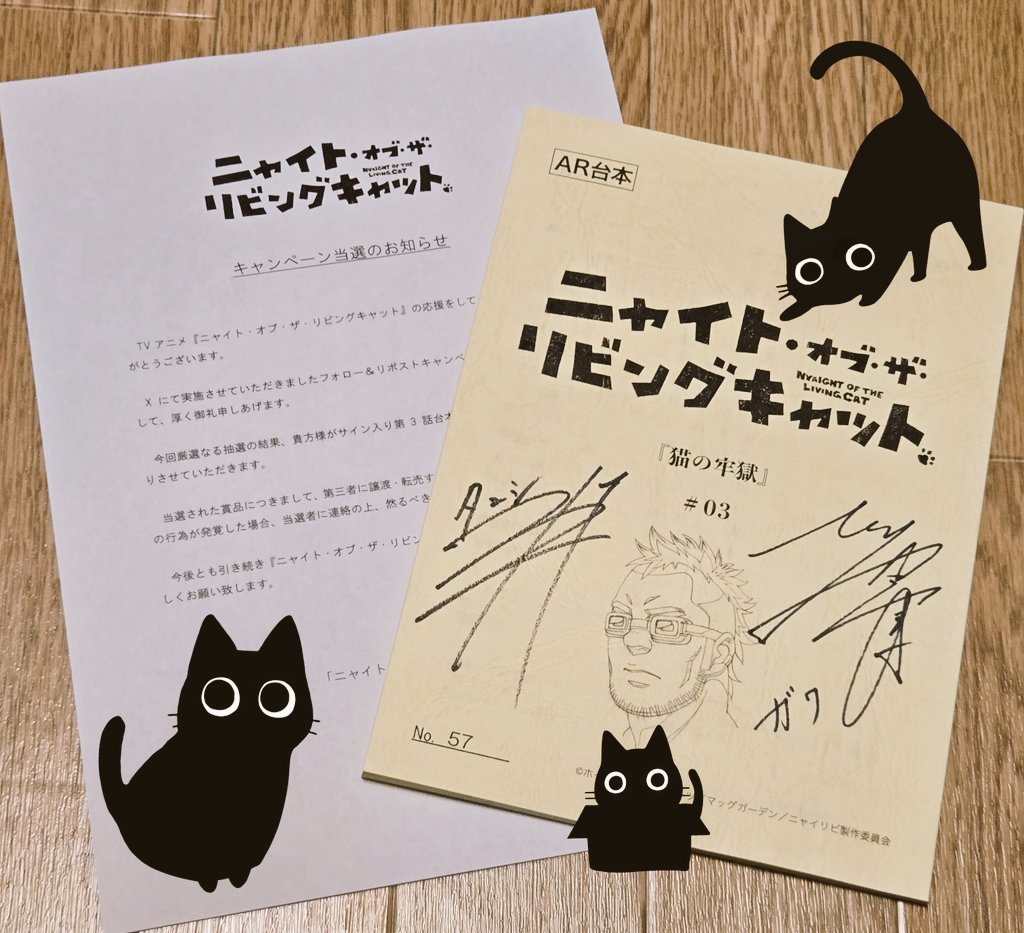 ニャイト・オブ・ザ・
リビングキャット
NYAIGHT OF THE
LIVING CAT
キャンペーン当選のお知らせ
TVアニメ『ニャイト・オブ・ザ・リビングキャット』の応援をして
がとうございます。
X にて実施させていただきましたフォロー＆リポストキャンペ
して、厚く御礼申しあげます。
今回厳選なる抽選の結果、貴方様がサイン入り第 3 話台本
りさせていただきます。
当選された賞品につきまして、第三者に譲渡・転売す
の行為が発覚した場合、当選者に連絡の上、然るべき
今後とも引き続き『ニャイト・オブ・ザ・リビン
しくお願い致します。
「ニャイト
AR台本
ニャイト・オブ・ザ・
リビングキャット
NYAIGHT OF THE
LIVING CAT
『猫の牢獄』
#03
ガク
No. 57
©ホー
マッグガーデン／ニャイリビ製作委員会